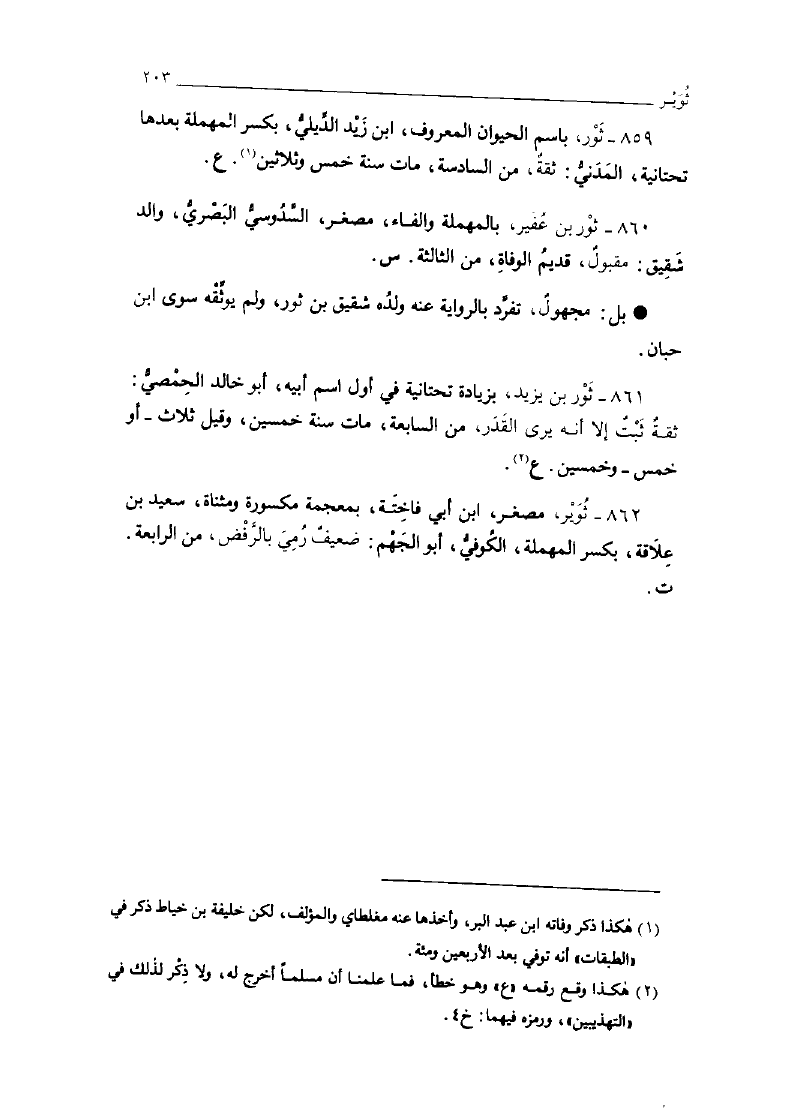 ثُوَيْـر ٢٠٣
٨٥٩ - ثَوْر، باسم الحيوان المعروف، ابن زَيْد الدِّيليُّ، بكسر المهملة بعدها
تحتانية، المَدَنيُّ: ثقةٌ، من السادسة، مات سنة خمس وثلاثين(١). ع.
٨٦٠ - ثوْر بن عُفَير، بالمهملة والفـاء، مصغـر، السَّدُوسيُّ البَصْريُّ، والد
شَقِيق: مقبولٌ، قديمُ الوفاةِ، من الثالثة. س.
● بل: مجهولٌ، تفرَّد بالرواية عنه ولدُه شقيق بن ثور، ولم يوثِّقْه سوى ابن
حبان.
٨٦١ - ثَوْر بن يزيد، بزيادة تحتانية في أول اسم أبيه، أبو خالد الحِمْصيُّ:
ثقـةٌ ثَبْتٌ إلا أنـه يرى القَدَر، من السابعة، مات سنة خمسين، وقيل ثلاث - أو
خمس - وخمسين. ع(٢).
٨٦٢ - ثُوَيْر، مصغـر، ابن أبي فاخِتَـة، بمعجمة مكسورة ومثناة، سعيد بن
عِلَاقة، بكسر المهملة، الكُوفيُّ، أبو الجَهْم: ضعيفٌ رُمِيَ بالرَّفْض، من الرابعة.
ت.
(١) هٰكذا ذكر وفاته ابن عبد البر، وأخذها عنه مغلطاي والمؤلف، لكن خليفة بن خياط ذكر في
«الطبقات» أنه توفي بعد الأربعين ومئة.
(٢) هٰكـذا وقـع رقمـه «ع» وهـو خطأ، فمـا علمنـا أن مسلمـاً أخرج له، ولا ذِكْر لذٰلك في
«التهذيبين»، ورمزه فيهما: خ٤.